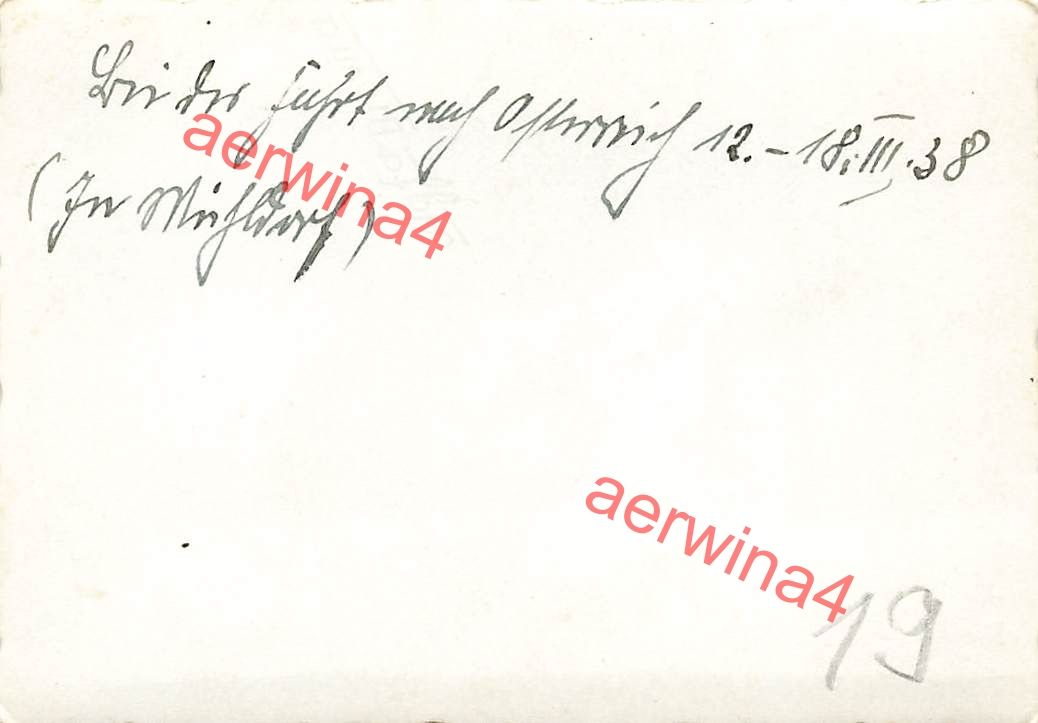 Bei der Fahrt nach Österreich 12. – 18. III. 38
(In Mühldorf)
aerwina4
aerwina4
19